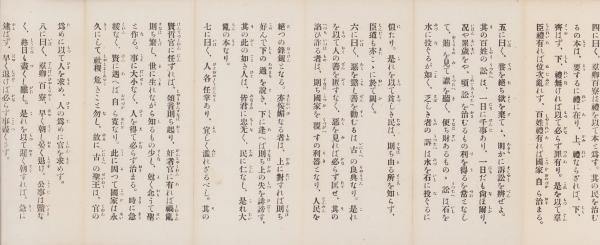 四に曰く、羣卿百寮は禮を以て本と爲す、其の民を治む
るの本は、要するに禮に在り、上、禮ならざれば、下、
齊はず、下、禮無ければ以て必ず罪有り。是を以て羣
臣禮有れば位次亂れず、百姓禮有れば國家自ら治まる。
五に曰く、饗を絶ち欲を棄てゝ、明かに訴訟を辨ぜよ。
其の百姓の訟は、一日に千事あり、一日だも尙ほ爾り、
況や累歳をや。頃ろ訟を治むるもの利を得るを常となし
て、賄を見て讞を聽く、便ち財あるもの、訟は石を
水に投ぐるが如く、乏しき者の訴は水を石に投ぐるに
似たり。是れを以て貧しき民は、則ち由る所を知らず、
臣道も亦こゝに於て闕く。
六に曰く、惡を懲し善を勸むるは、古の良典なり、是れ
を以て人の善を匿すなく、惡を見れば必ず匡せ、其の
諂ひ詐る者は、則ち國家を覆すの利器となり、人民を
絶つの鋒劍となる、亦佞媚する者は、上に對すれば則ち
好んで下の過を說き、下に逢へば則ち上の失を誹謗す。
其の此の如き人は、皆君に忠无く、民に仁なし、是れ大
亂の本なり。
七に曰く、人各任掌あり、宜しく濫れざるべし。其の
賢哲官に任ずれば、頌音則ち起り、奸者官に有れば禍亂
則ち繁し、世に生れながら知るもの少し、尅く念うて聖
と作る。事に大小なく、人を得て必ず治まる、時に急
緩なく、賢に遇へば自ら寬なり、此に因つて國家は永
久にして社稷危きこと勿し、故に古の聖王は、官の
爲めに以て人を求め、人の爲めに官を求めず。
八に曰く、羣卿百寮、早く朝し晏く退け、公事は盬な
く、終日も盡くし難し。是れを以て遲く朝すれば、急に
逮ばず、早く退けば必ず事盡くさず。